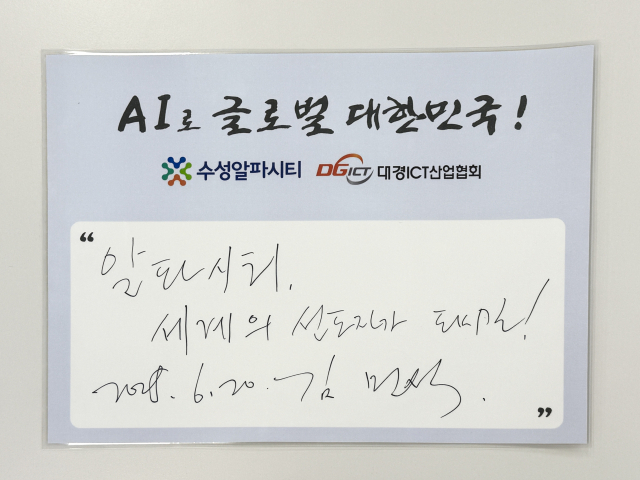 AI로 글로벌 대한민국!
수성알파시티 DGICT 대경ICT산업협회
“
알파시티,
세계의 선도자가 되시길!
2025. 6. 20. 김민석.
”